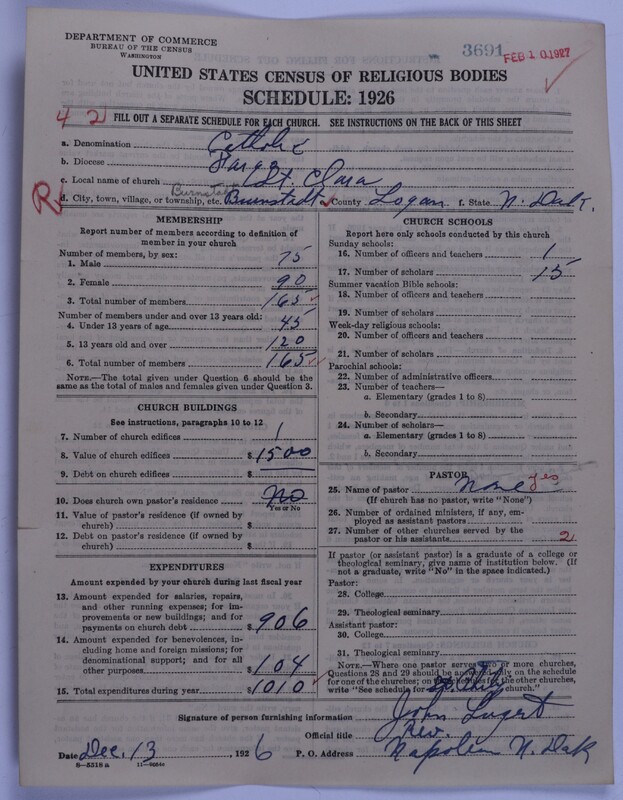 DEPARTMENT OF COMMERCE
BUREAU OF THE CENSUS
WASHINGTON
3691 FEB 10 1927
UNITED STATES CENSUS OF RELIGIOUS BODIES
SCHEDULE: 1926
4 2 FILL OUT A SEPARATE SCHEDULE FOR EACH CHURCH. SEE INSTRUCTIONS ON THE BACK OF THIS SHEET
a. Denomination Catholic
b. Diocese Fargo
c. Local name of church St. Clara
R d. City, town, village, or township, etc. Burnstad Burnstadt County Logan f. State N. Dak.
MEMBERSHIP
Report number of members according to definition of
member in your church
Number of members, by sex:
1. Male 75
2. Female 90
3. Total number of members 165
Number of members under and over 13 years old:
4. Under 13 years of age 45
5. 13 years old and over 120
6. Total number of members 165
NOTE.—The total given under Question 6 should be
same as the total of males and females given under Question 3.
CHURCH BUILDINGS
See instructions, paragraphs 10 to 12
7. Number of church edifices 1
8. Value of church edifices $ 1500
9. Debt on church edifices $
10. Does church own pastor's residence No
Yes or No
11. Value of pastor's residence (if owned by
church) $
12. Debt on pastor's residence (if owned by
church) $
EXPENDITURES
Amount expended by your church during last fiscal year
13. Amount expended for salaries, repairs,
and other running expenses; for im-
provements or new buildings; and for
payments on church debt $ 906
14. Amount expended for benevolences, in-
cluding home and foreign missions; for
denominational support; and for all
other purposes $ 104
15. Total expenditures during year $ 1010
CHURCH SCHOOLS
Report here only schools conducted by this church
Sunday schools:
16. Number of officers and teachers 1
17. Number of scholars 15
Summer vacation Bible schools:
18. Number of officers and teachers
19. Number of scholars
Week-day religious schools:
20. Number of officers and teachers
21. Number of scholars
Parochial schools:
22. Number of administrative officers
23. Number of teachers—
a. Elementary (grades 1 to 8)
b. Secondary
24. Number of scholars—
a. Elementary (grades 1 to 8)
b. Secondary
PASTOR
25. Name of pastor None yes
(If church has no pastor, write "None")
26. Number of ordained ministers, if any, em-
ployed as assistant pastors
27. Number of other churches served by the
pastor or his assistants 2
If pastor (or assistant pastor) is a graduate of a college or
theological seminary, give name of institution below. (If
not a graduate, write "No" in the space indicated.)
Pastor:
28. College
29. Theological seminary
Assistant pastor:
30. College
31. Theological seminary
NOTE.—Where one pastor serves two or more churches,
Questions 28 and 29 should be answered only on the schedule
for one of the churches; on the schedules for the other churches,
write "See schedule for St. Phil church."
Signature of person furnishing information John Lugert
Official title Rev.
Date Dec. 13 1926 P. O. Address Napoleon N. Dak
8—5318 a